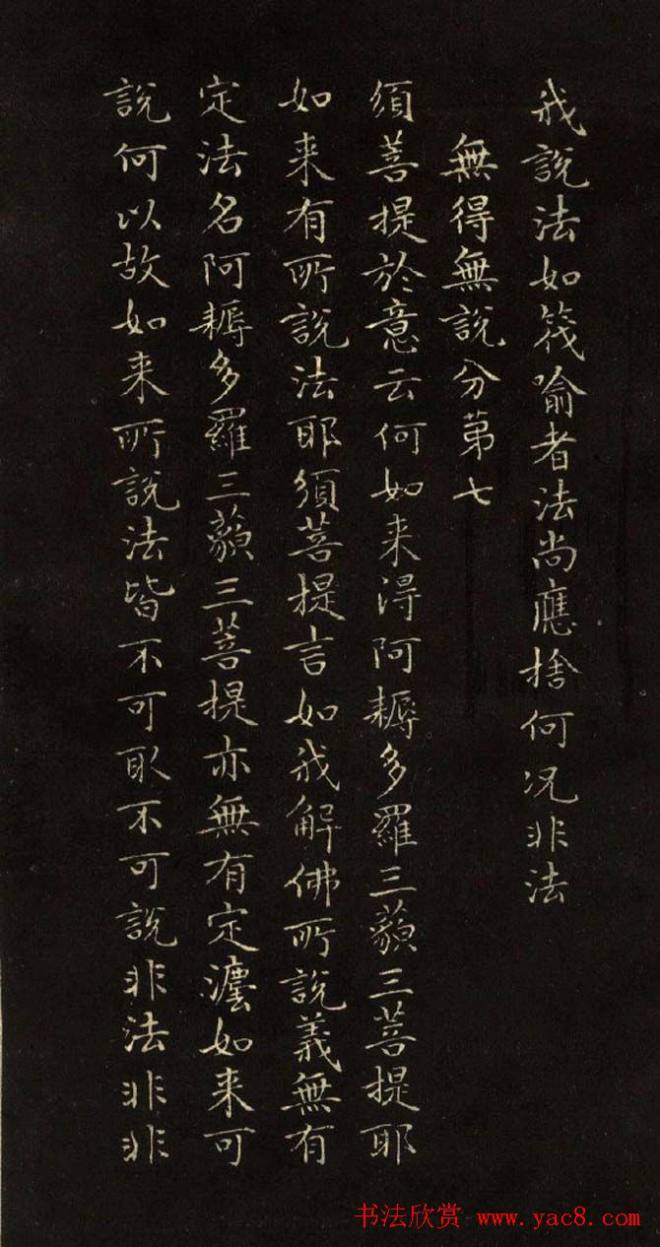 我說法如筏喻者法尚應捨何况非法
無得無說分第七
須菩提於意云何如来得阿耨多羅三藐三菩提耶
如来有所說法耶須菩提言如我解佛所說義無有
定法名阿耨多羅三藐三菩提亦無有定灋如来可
說何以故如来所說法皆不可取不可說非法非非
书法欣赏 www.yac8.com